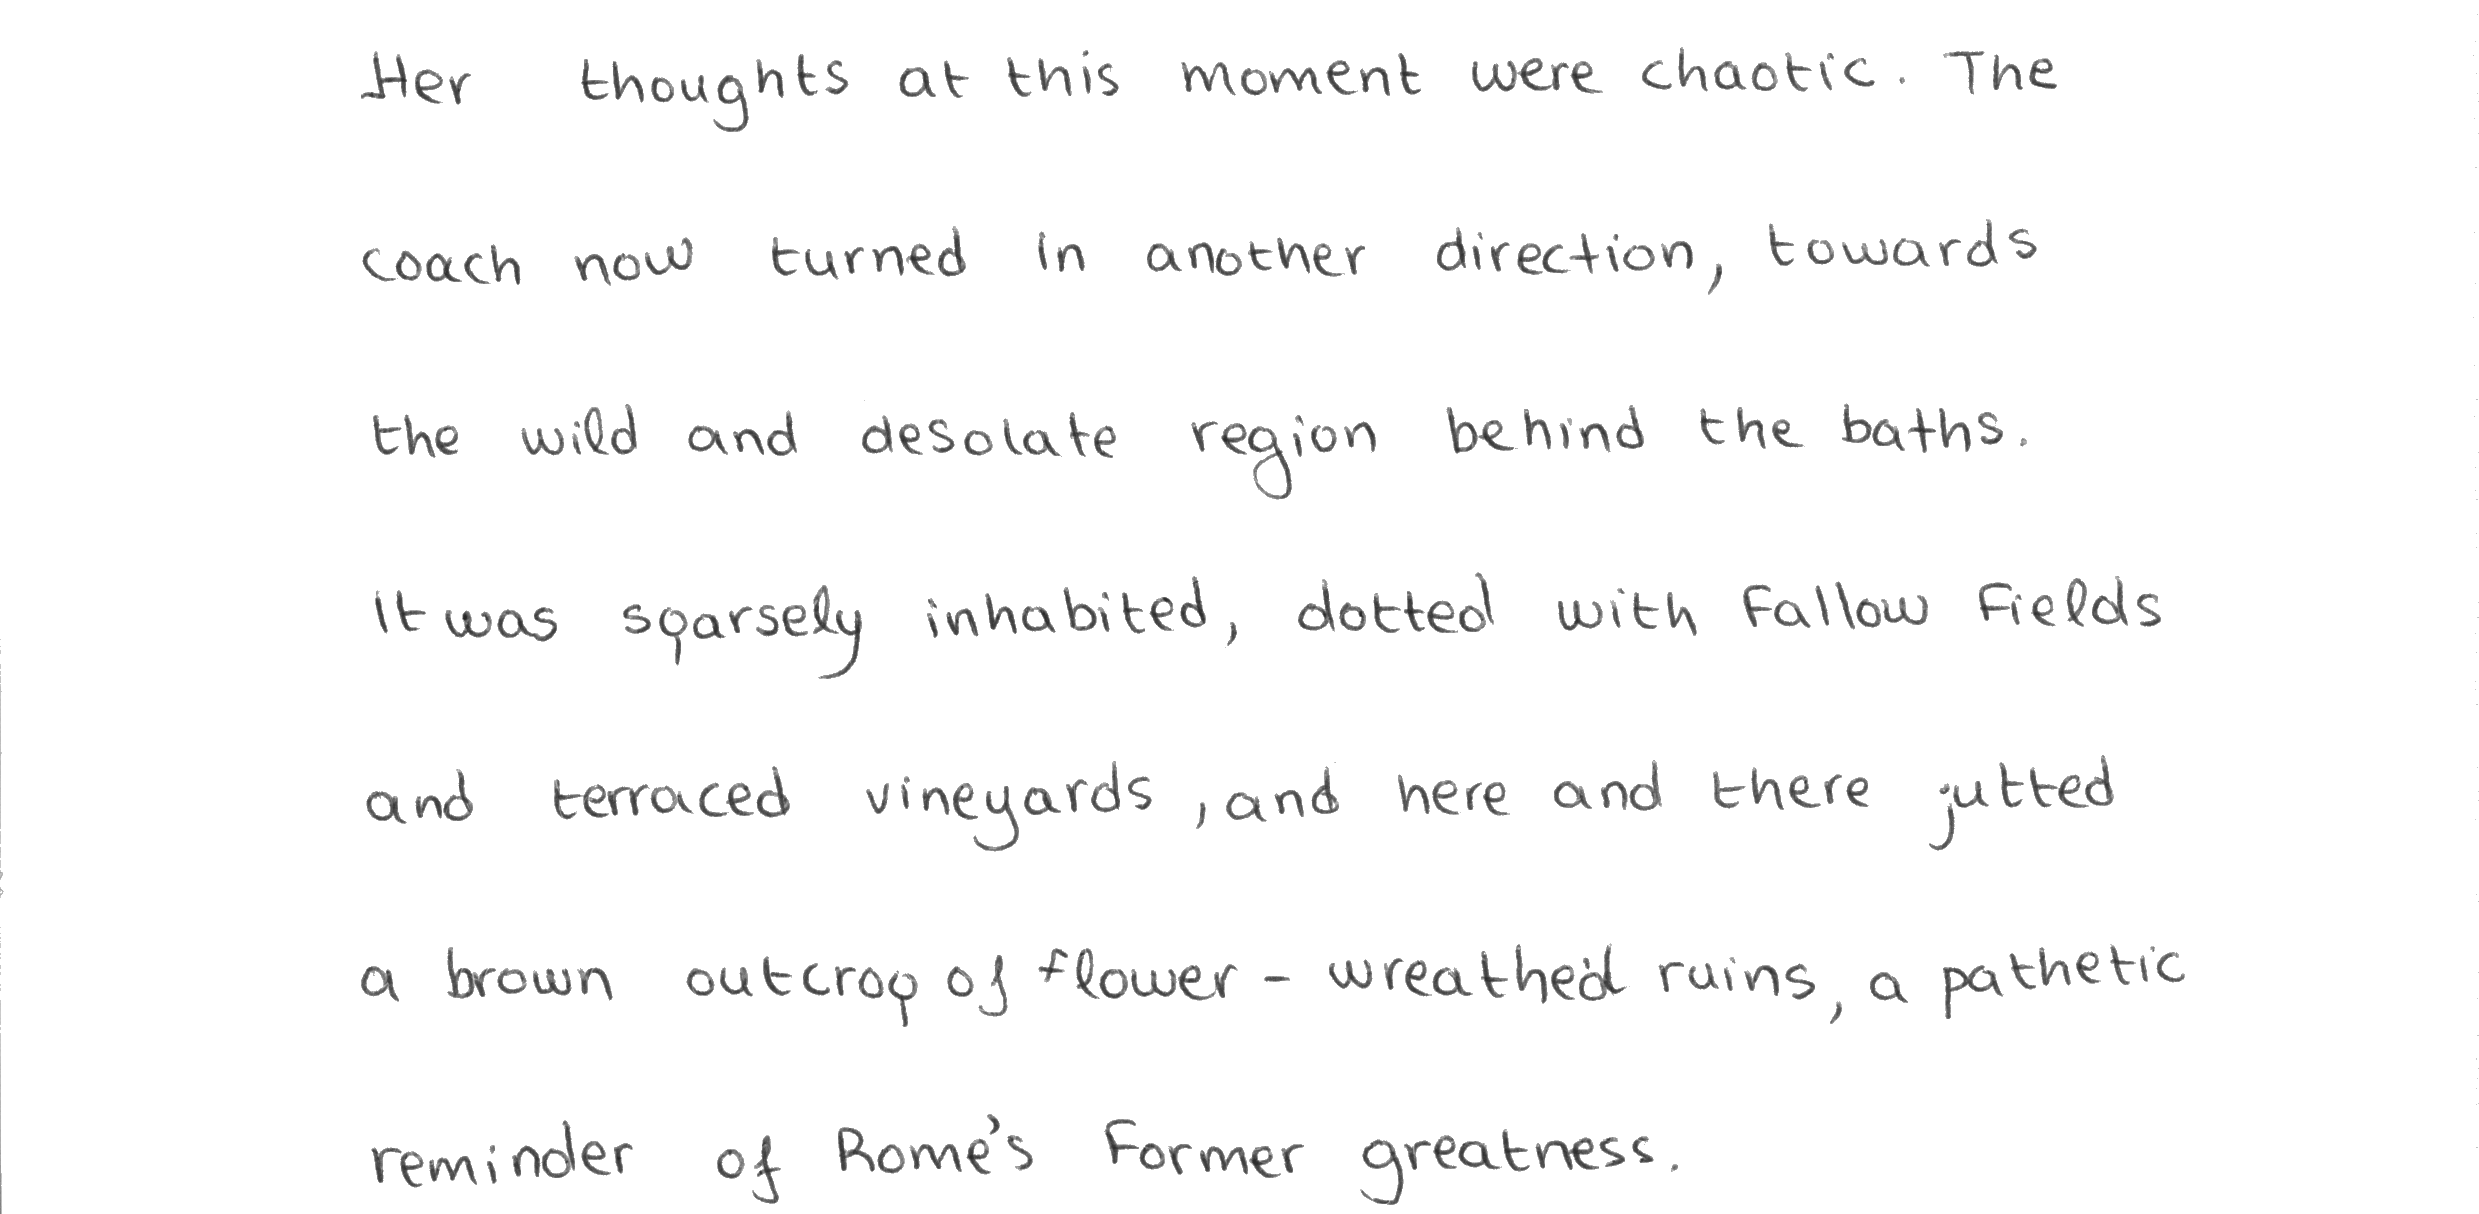 Her thoughts at this moment were chaotic. The
coach now turned in another direction, towards
the wild and desolate region behind the baths.
It was sparsely inhabited, dotted with fallow fields
and terraced vineyards, and here and there jutted
a brown outcrop of flower - wreathed ruins, a pathetic
reminder of Rome's former greatness.